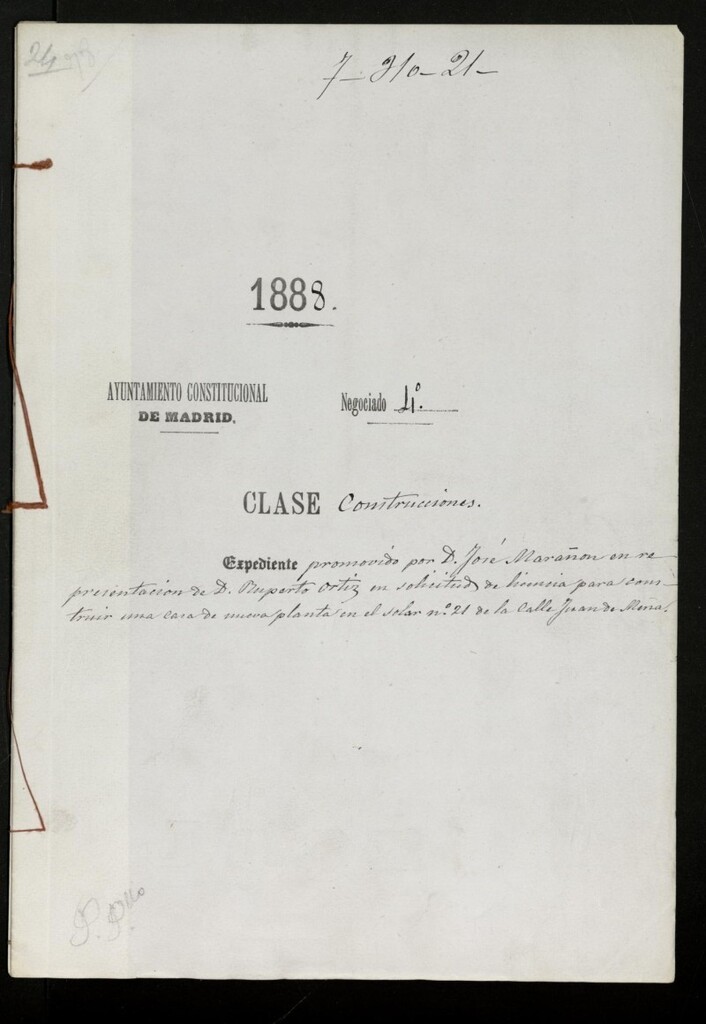 7-310-21-
1888.
AYUNTAMIENTO CONSTITUCIONAL
DE MADRID.
Negociado 4.º
CLASE Construcciones.
Expediente promovido por D. José Marañon en re-
presentacion de D. Ruperto Ortiz en solicitud de licencia para cons-
truir una casa de nueva planta en el solar n.º 21 de la Calle Juan de Mena.